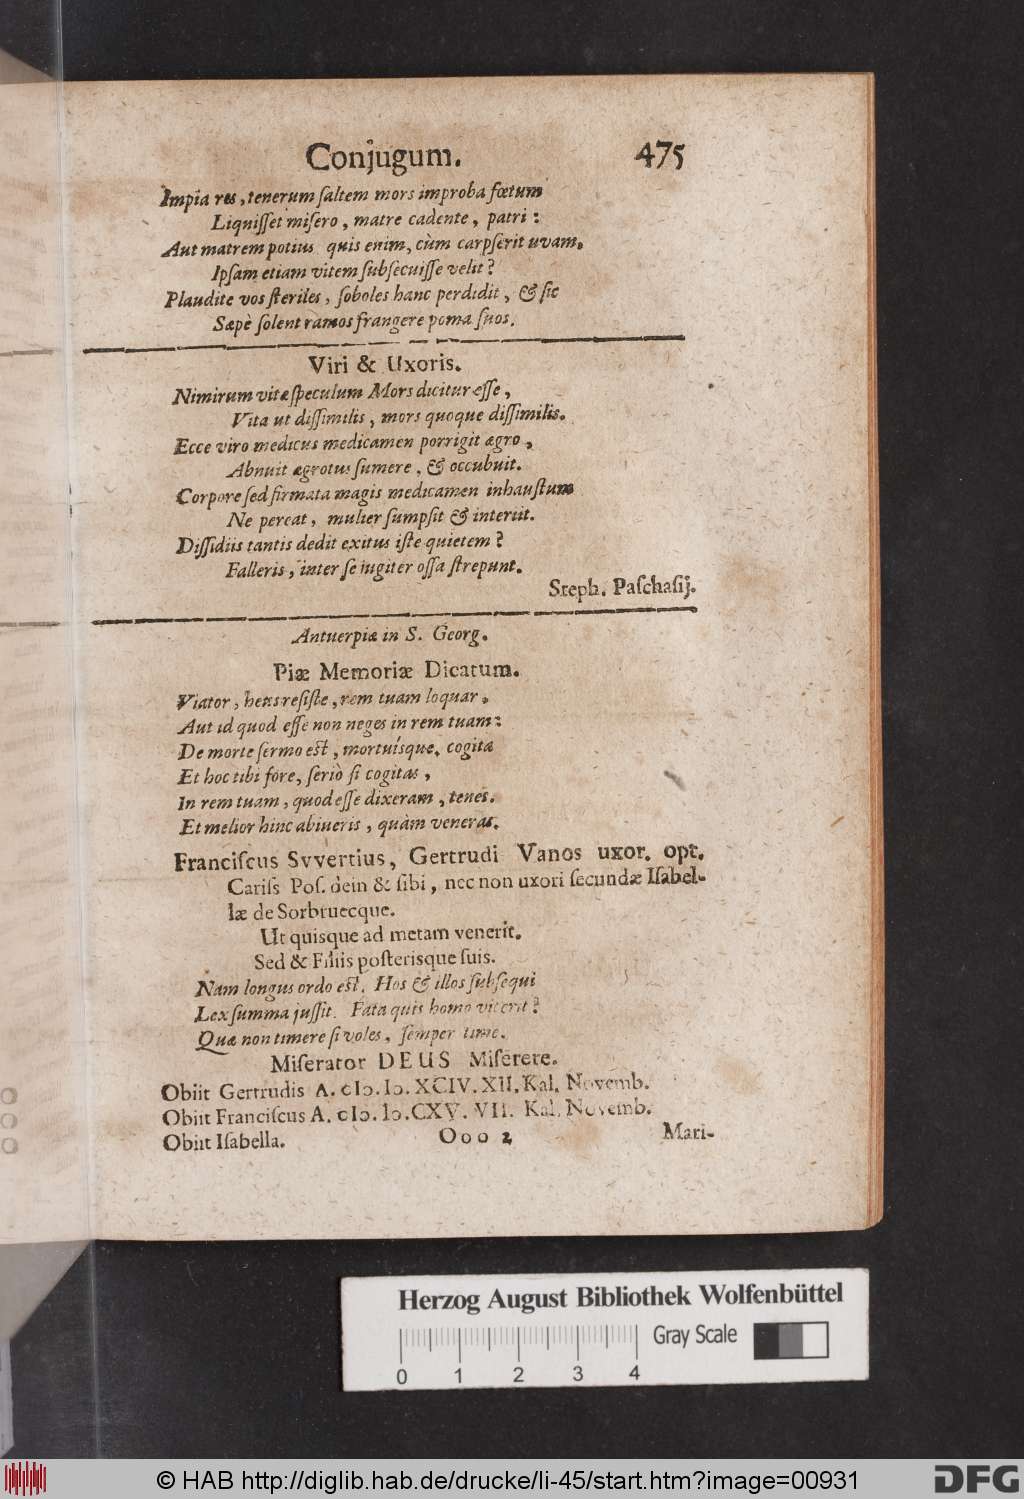 Conjugum. 475
Impia res, tenerum ſaltem mors improba fœtum
Liquiſſet miſero, matre cadente, patri:
Aut matrem potius quis enim, cùm carpſerit uvam,
Ipſam etiam vitem ſubſecuiſſe velit?
Plaudite vos ſteriles, ſoboles hanc perdidit, & ſic
Sæpè ſolent ramos frangere poma ſuos.
Viri & Uxoris.
Nimirum vitæ ſpeculum Mors dicitur eſſe,
Vita ut diſſimilis, mors quoque diſſimilis.
Ecce viro medicus medicamen porrigit ægro,
Abnuit ægrotus ſumere, & occubuit.
Corpore ſed firmata magis medicamen inhauſtum
Ne pereat, mulier ſumpſit & interiit.
Diſſidiis tantis dedit exitus iſte quietem?
Falleris, inter ſe iugiter oſſa ſtrepunt.
Steph. Paſchaſij.
Antuerpiæ in S. Georg.
Piæ Memoriæ Dicatum.
Viator, heus reſiſte, rem tuam loquar,
Aut id quod eſſe non neges in rem tuam:
De morte ſermo eſt, mortuísque, cogita
Et hoc tibi fore, ſeriò ſi cogitas,
In rem tuam, quod eſſe dixeram, tenes.
Et melior hinc abiueris, quàm veneras.
Franciſcus Svvertius, Gertrudi Vanos uxor. opt.
Cariſs Poſ. dein & ſibi, nec non uxori ſecundæ Iſabel-
læ de Sorbruecque.
Ut quisque ad metam venerit.
Sed & Filiis poſterisque ſuis.
Nam longus ordo eſt. Hos & illos ſubſequi
Lex ſumma juſſit. Fata quis homo vicerit?
Quæ non timere ſi voles, ſemper time.
Miſerator DEUS Miſerere.
Obiit Gertrudis A. cIↄ. Iↄ. XCIV. XII. Kal. Novemb.
Obiit Franciſcus A. cIↄ. Iↄ. CXV. VII. Kal. Novemb.
Obiit Iſabella. Ooo 2 Mari-
Herzog August Bibliothek Wolfenbüttel
Gray Scale
0 1 2 3 4
© HAB http://diglib.hab.de/drucke/li-45/start.htm?image=00931
DFG